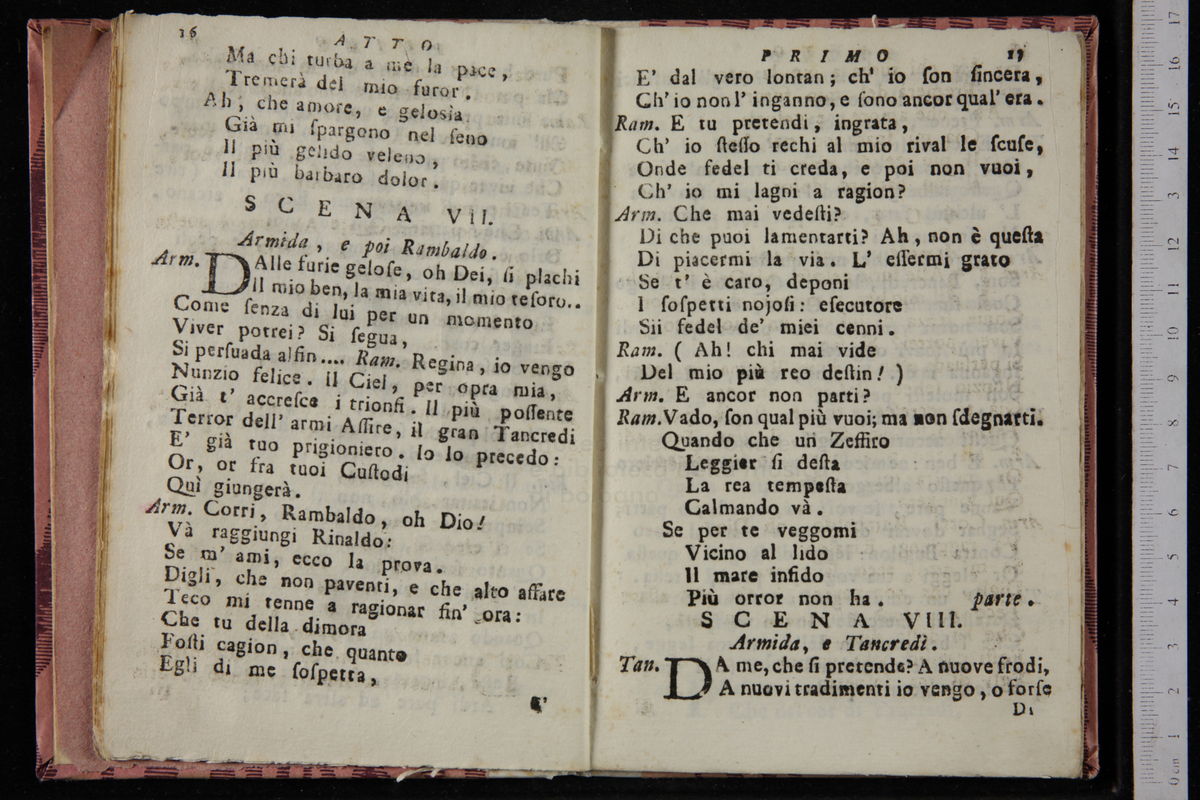 16
A T T O
Ma chi turba a me la pace,
Tremerà del mio furor.
Ah, che amore, e gelosìa
Già mi ſpargono nel ſeno
Il più gelido veleno,
Il più barbaro dolor.
S C E N A VII.
Armida, e poi Rambaldo.
Arm. DAlle furie geloſe, oh Dei, ſi plachi
Il mio ben, la mia vita, il mio teſoro..
Come ſenza di lui per un momento
Viver potrei? Si ſegua,
Si perſuada alfin.... Ram. Regina, io vengo
Nunzio felice. il Ciel, per opra mia,
Già t' accreſce i trionfi. Il più poſſente
Terror dell' armi Aſſire, il gran Tancredi
E' già tuo prigioniero. Io lo precedo:
Or, or fra tuoi Cuſtodi
Quì giungerà.
Arm. Corri, Rambaldo, oh Dio!
Và raggiungi Rinaldo:
Se m' ami, ecco la prova.
Digli, che non paventi, e che alto affare
Teco mi tenne a ragionar fin' ora:
Che tu della dimora
Foſti cagion, che quanto
Egli di me ſoſpetta,
E'
P R I M O
17
E' dal vero lontan; ch' io ſon ſincera,
Ch' io non l' inganno, e ſono ancor qual' era.
Ram. E tu pretendi, ingrata,
Ch' io ſteſſo rechi al mio rival le ſcuſe,
Onde fedel ti creda, e poi non vuoi,
Ch' io mi lagni a ragion?
Arm. Che mai vedeſti?
Di che puoi lamentarti? Ah, non è queſta
Di piacermi la via. L' eſſermi grato
Se t' è caro, deponi
I ſoſpetti nojoſi: eſecutore
Sii fedel de' miei cenni.
Ram. ( Ah! chi mai vide
Del mio più reo deſtin! )
Arm. E ancor non parti?
Ram. Vado, ſon qual più vuoi; ma non ſdegnarti.
Quando che un Zeffiro
Leggier ſi deſta
La rea tempeſta
Calmando và.
Se per te veggomi
Vicino al lido
Il mare infido
Più orror non ha. parte.
S C E N A VIII.
Armida, e Tancredi.
Tan. DA me, che ſi pretende? A nuove frodi,
A nuovi tradimenti io vengo, o forſe
Di
0 cm 1 2 3 4 5 6 7 8 9 10 11 12 13 14 15 16 17